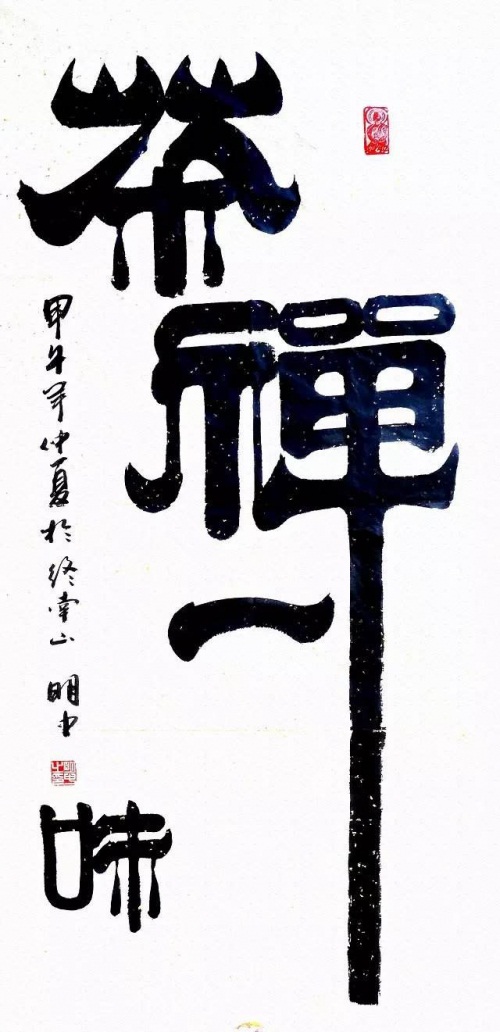 茶禪一味
甲午年仲夏於終南山 明中